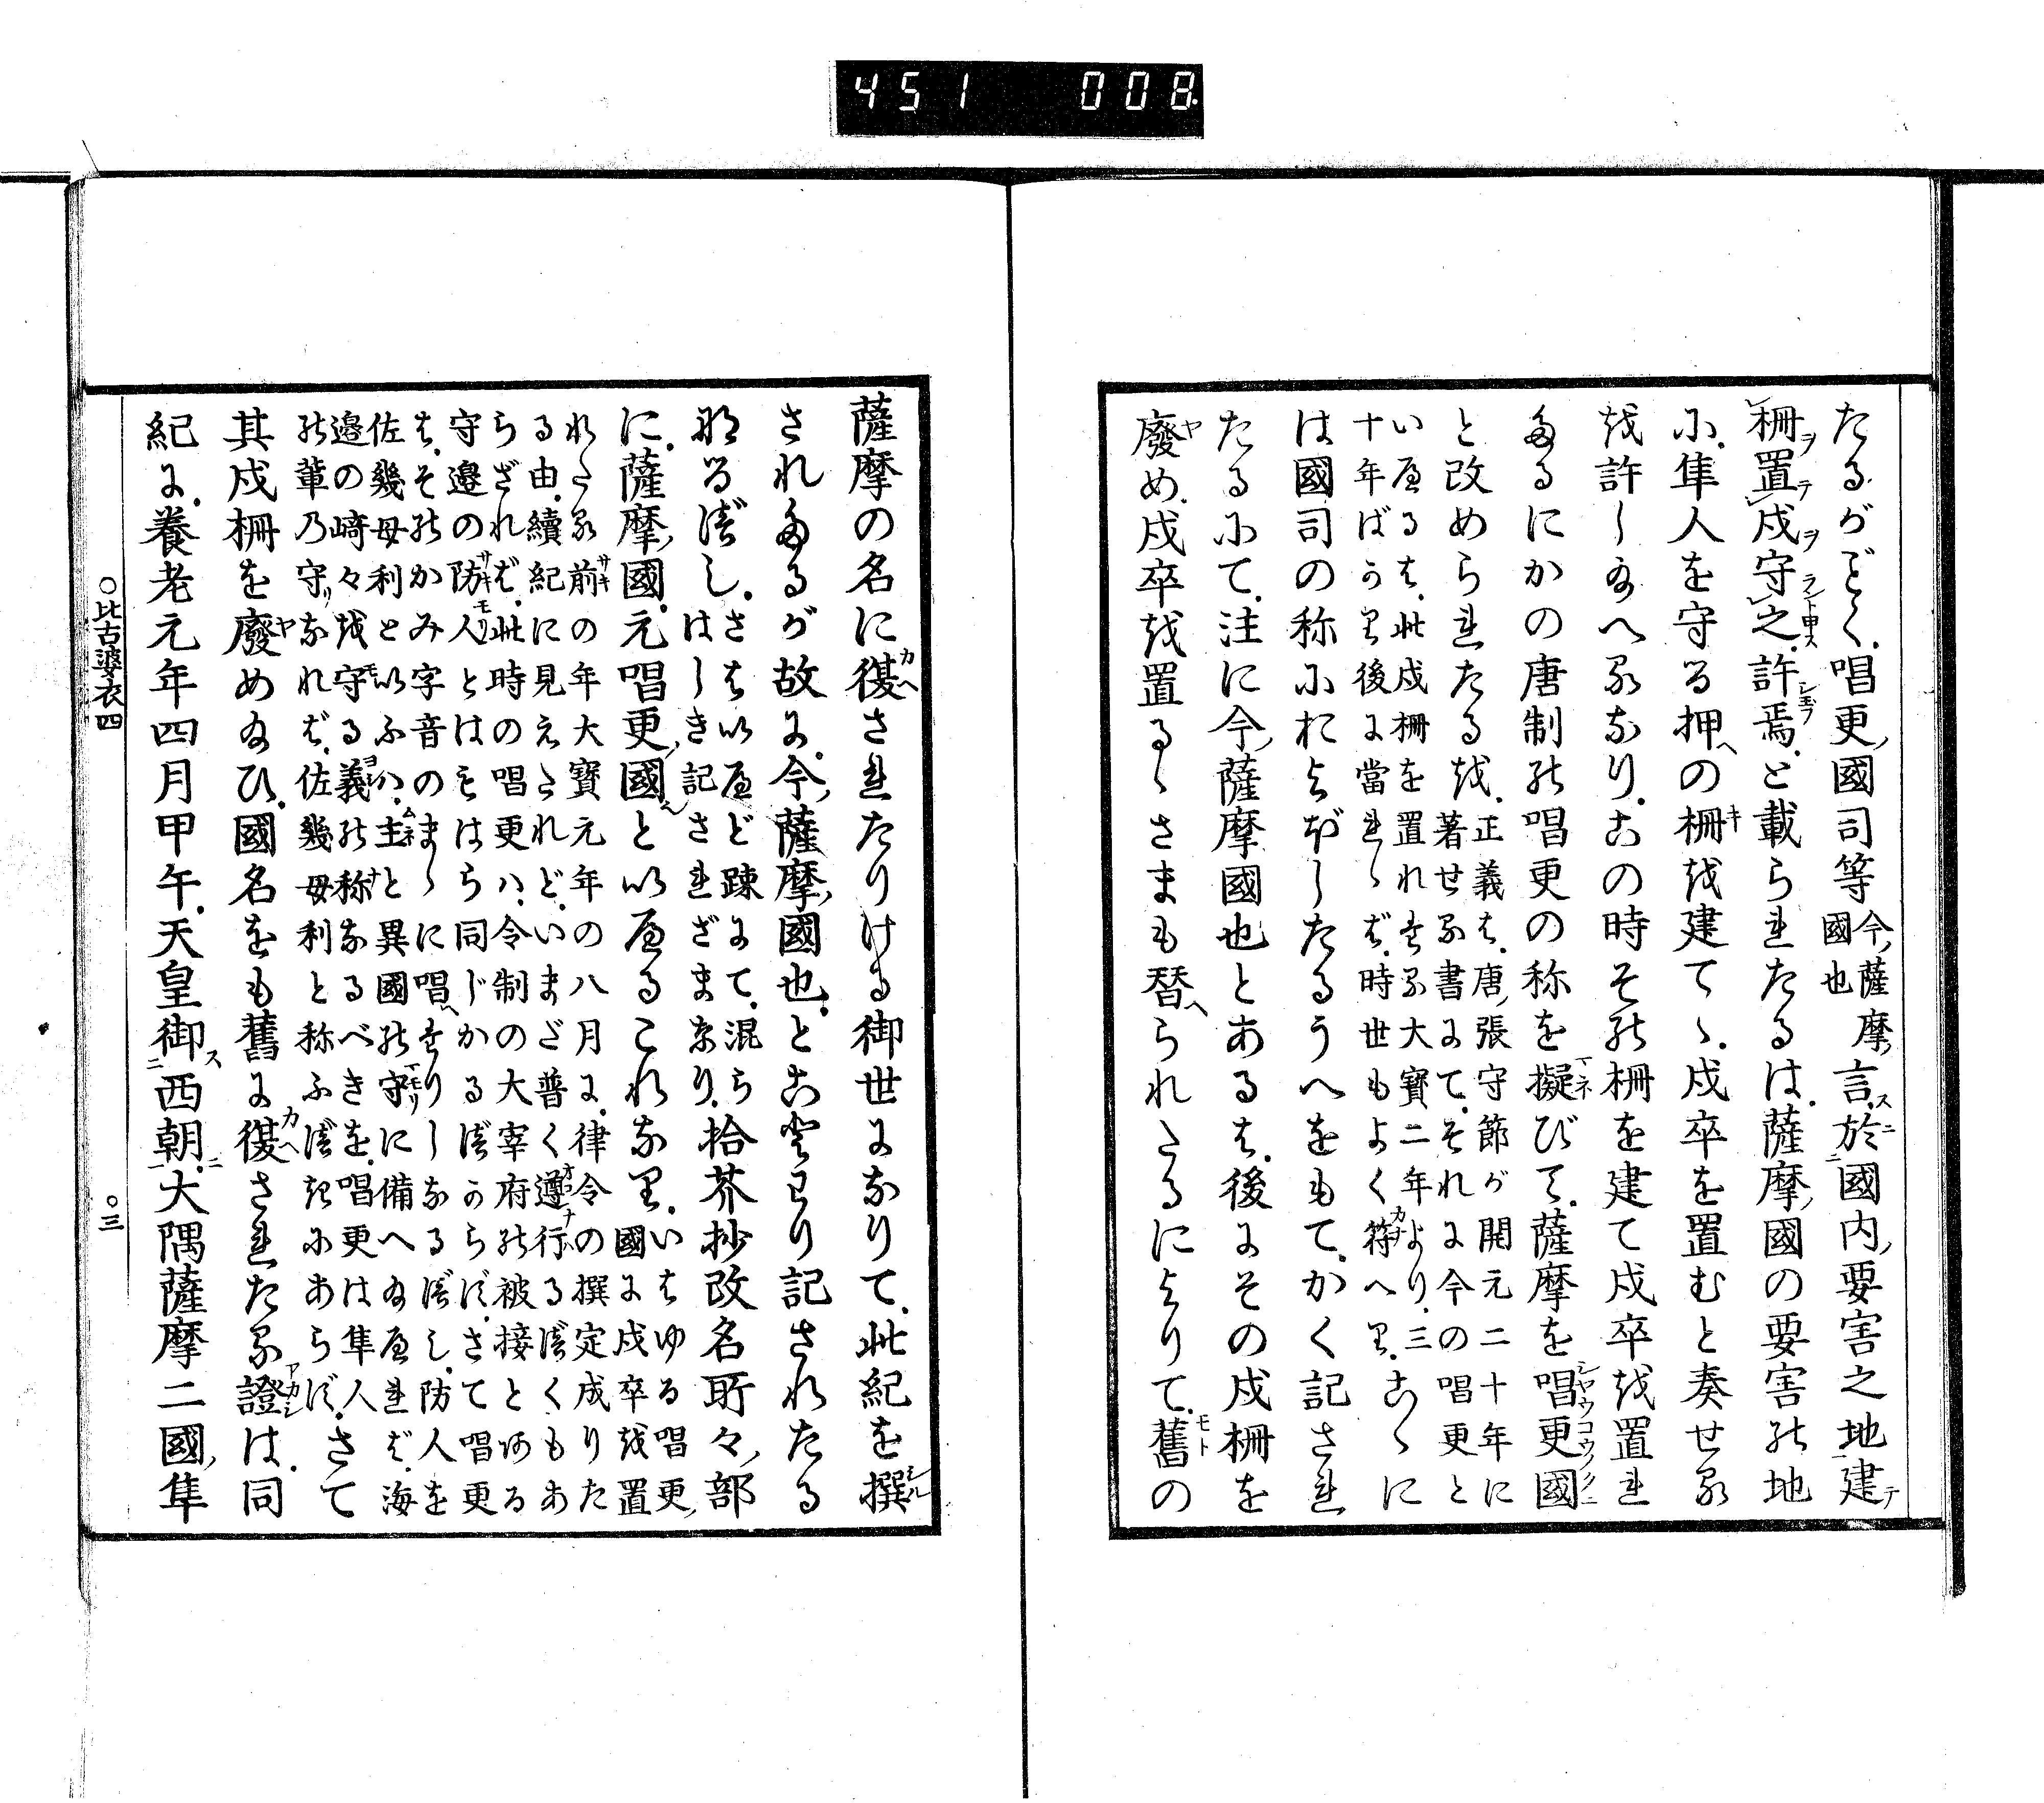 451 008
たるがごとく、唱更國司等 今薩摩國也 言於國内要害之地建
柵置戍守之許焉と載られたるは、薩摩國の要害の地
に、隼人を守る押への柵を建てゝ、戍卒を置むと奏せる
を許し給へるなり、この時その柵を建て戍卒を置れ
たるにかの唐制の唱更の称を擬びて、薩摩を唱更國
と改められたるを、正義は、唐張守節が開元二十年に
著せる書にて、それに今の唱更と
いへるは、此戍柵を置れたる大寶二年より、三
十年ばかり後に當れゝば、時世もよく符へり、こゝに
は國司の称におよぼしたるうへをもて、かく記され
たるにて、注に今薩摩國也とあるは、後にその戍柵を
廢め、戍卒を置るゝさまも替られたるによりて、舊の
薩摩の名に復されたりける御世になりて、此紀を撰
されたるが故に、今薩摩國也、とことわり記されたる
なるべし、さはいへど疎にて、混ら
はしき記されざまなり、拾芥抄改名所々部
に、薩摩國、元唱更國といへるこれなり、いはゆる唱更
國に戍卒を置
れたる前の年大寶元年の八月に、律令の撰定成りた
る由、續紀に見えたれど、いまだ普く遵行るべくもあ
らざれば、此時の唱更ハ、令制の大宰府の被接とある
守邊の防人とはもはら同じかるべからず、さて唱更
は、そのかみ字音のまゝに唱へたりしなるべし、防人を
佐幾母利と以ふハ、主と異國の守に備へ給へれば、海
邊の﨑々を守る義の称なるべきを、唱更は隼人
の輩乃守なれば、佐幾母利と称ふべきにあらず、さて
其戍柵を廢め給ひ、國名をも舊に復されたる證は、同
紀に、養老元年四月甲午、天皇御西朝、大隅薩摩二國隼
○比古婆衣四
○三